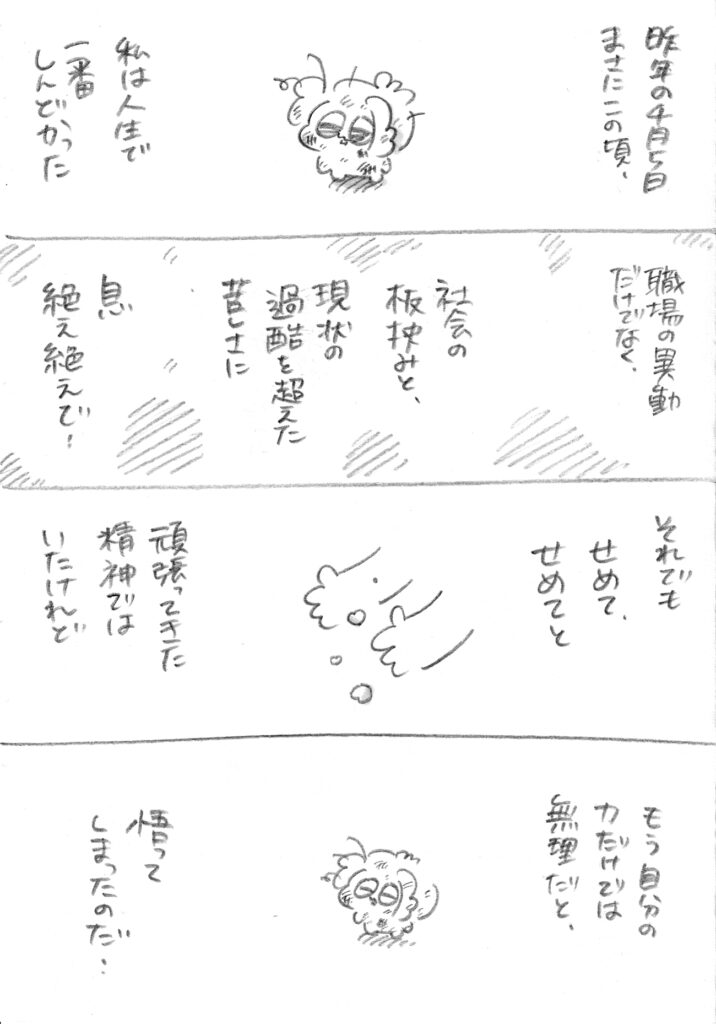 昨年の4月5日
まさにこの頃、
私は人生で
一番
しんどかった
職場の異動
だけでなく、
社会の
板挟みと、
現状の
過酷を超えた
苦しさに
息
絶え絶えで!
それでも
せめて、
せめてと
頑張ってきた
精神では
いたけれど
もう自分の
力だけでは
無理だと、
悟って
しまったのだ!